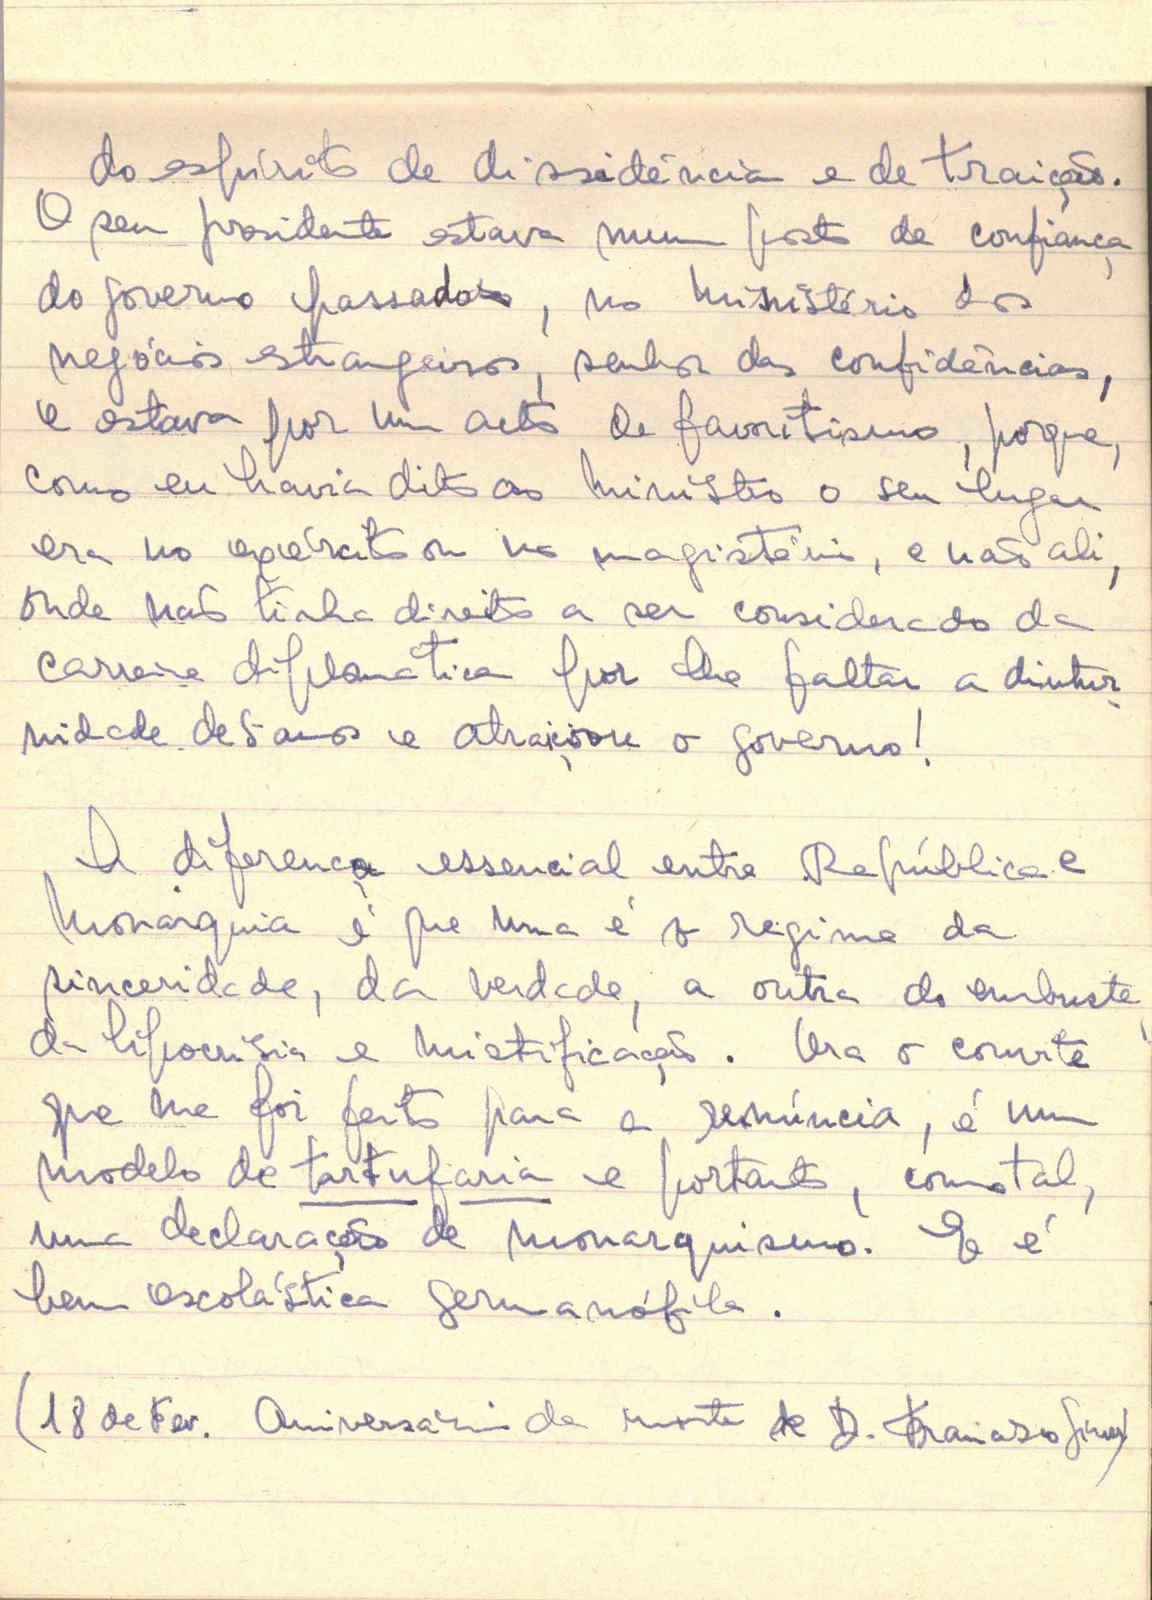 do espírito de dissidência e de traição.
O seu presidente estava num posto de confiança
do governo passado, no Ministério dos
negócios estrangeiros, senhor das confidências,
e estava por um acto de favoritismo, porque,
como eu havia dito ao Ministro o seu lugar
era no exército ou no magistério, e não ali,
onde não tinha direito a ser considerado da
carreira diplomática por lhe faltar a diutur-
nidade de 5 anos e atraiçoou o governo!
A diferença essencial entre República e
Monarquia é que uma é o regime da
sinceridade, da verdade, a outra do embuste,
da hipocrisia e mistificação. Ora o convite
que me foi feito para a renúncia, é um
modelo de tartufaria e portanto, como tal,
uma declaração de monarquismo. E é
bem escolástica germanófila.
(18 de Fev. Aniversário da morte de D. Francisco Giner)